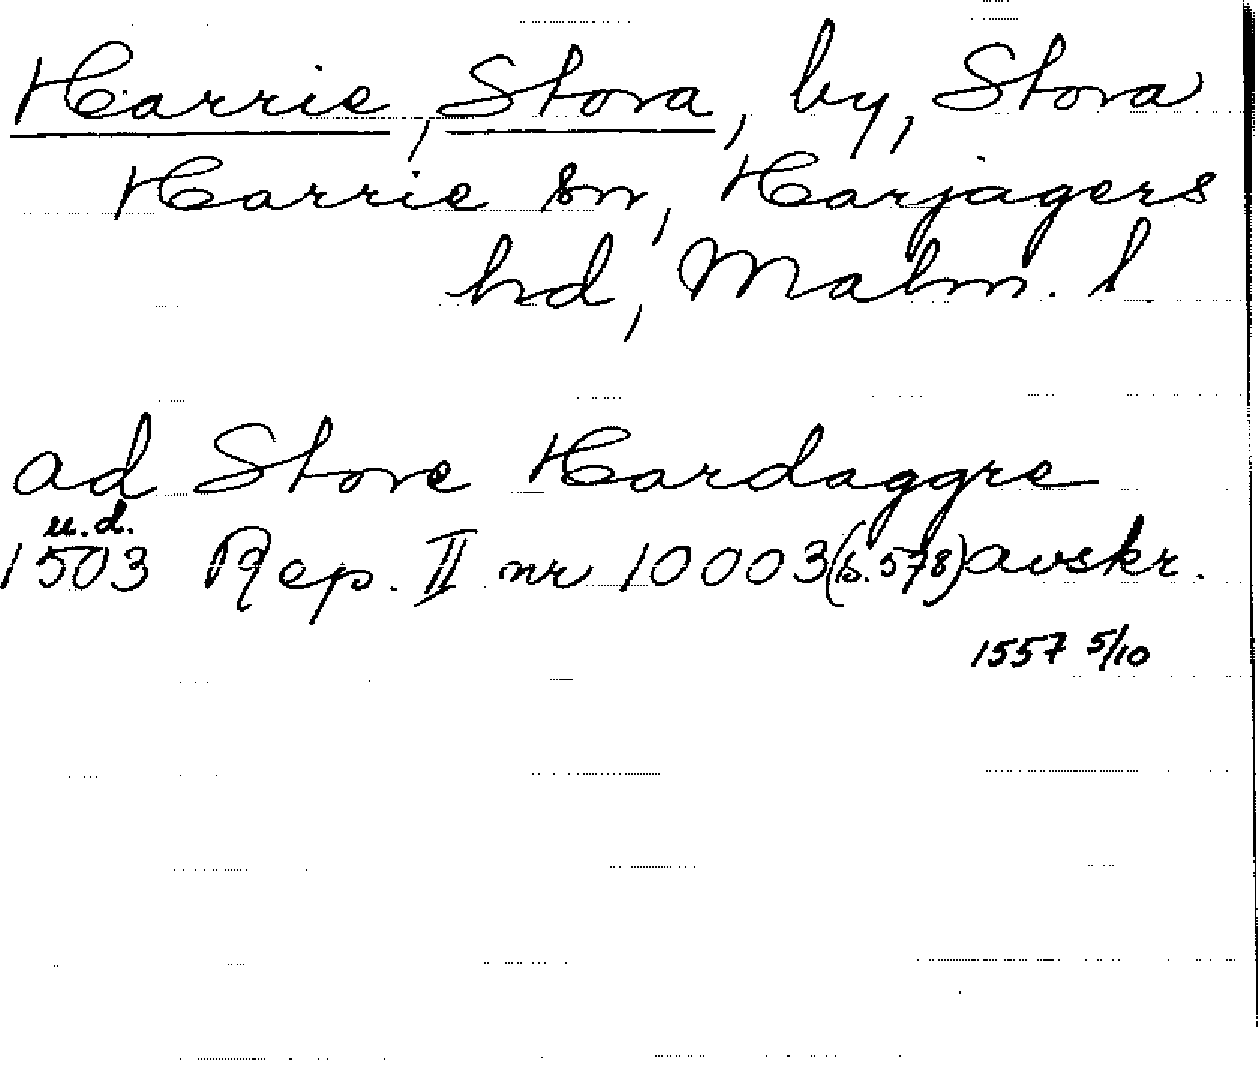 Harrie, Stora, by, Stora
Harrie sn, Harjagers
hd, Malm. l
ad Store Hardaggre
u.d.
1503 Rep. II nr 10003 (s. 578) avskr.
1557 5/10